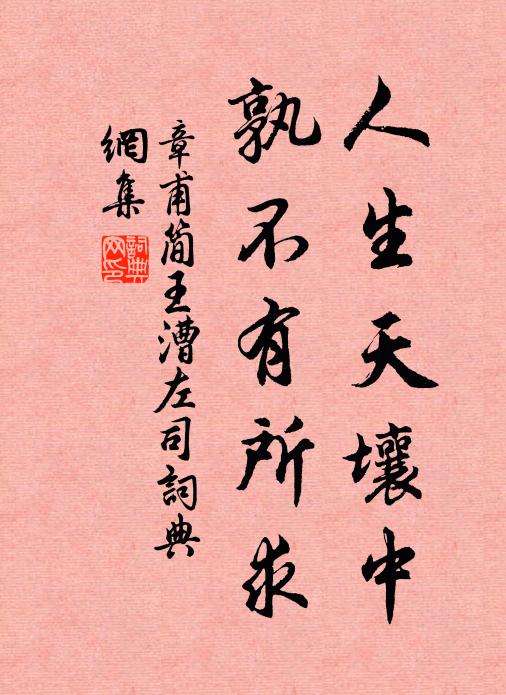 人生天壤中
孰不有所求
章甫簡王漕左司詞典
網集
詞典
网印